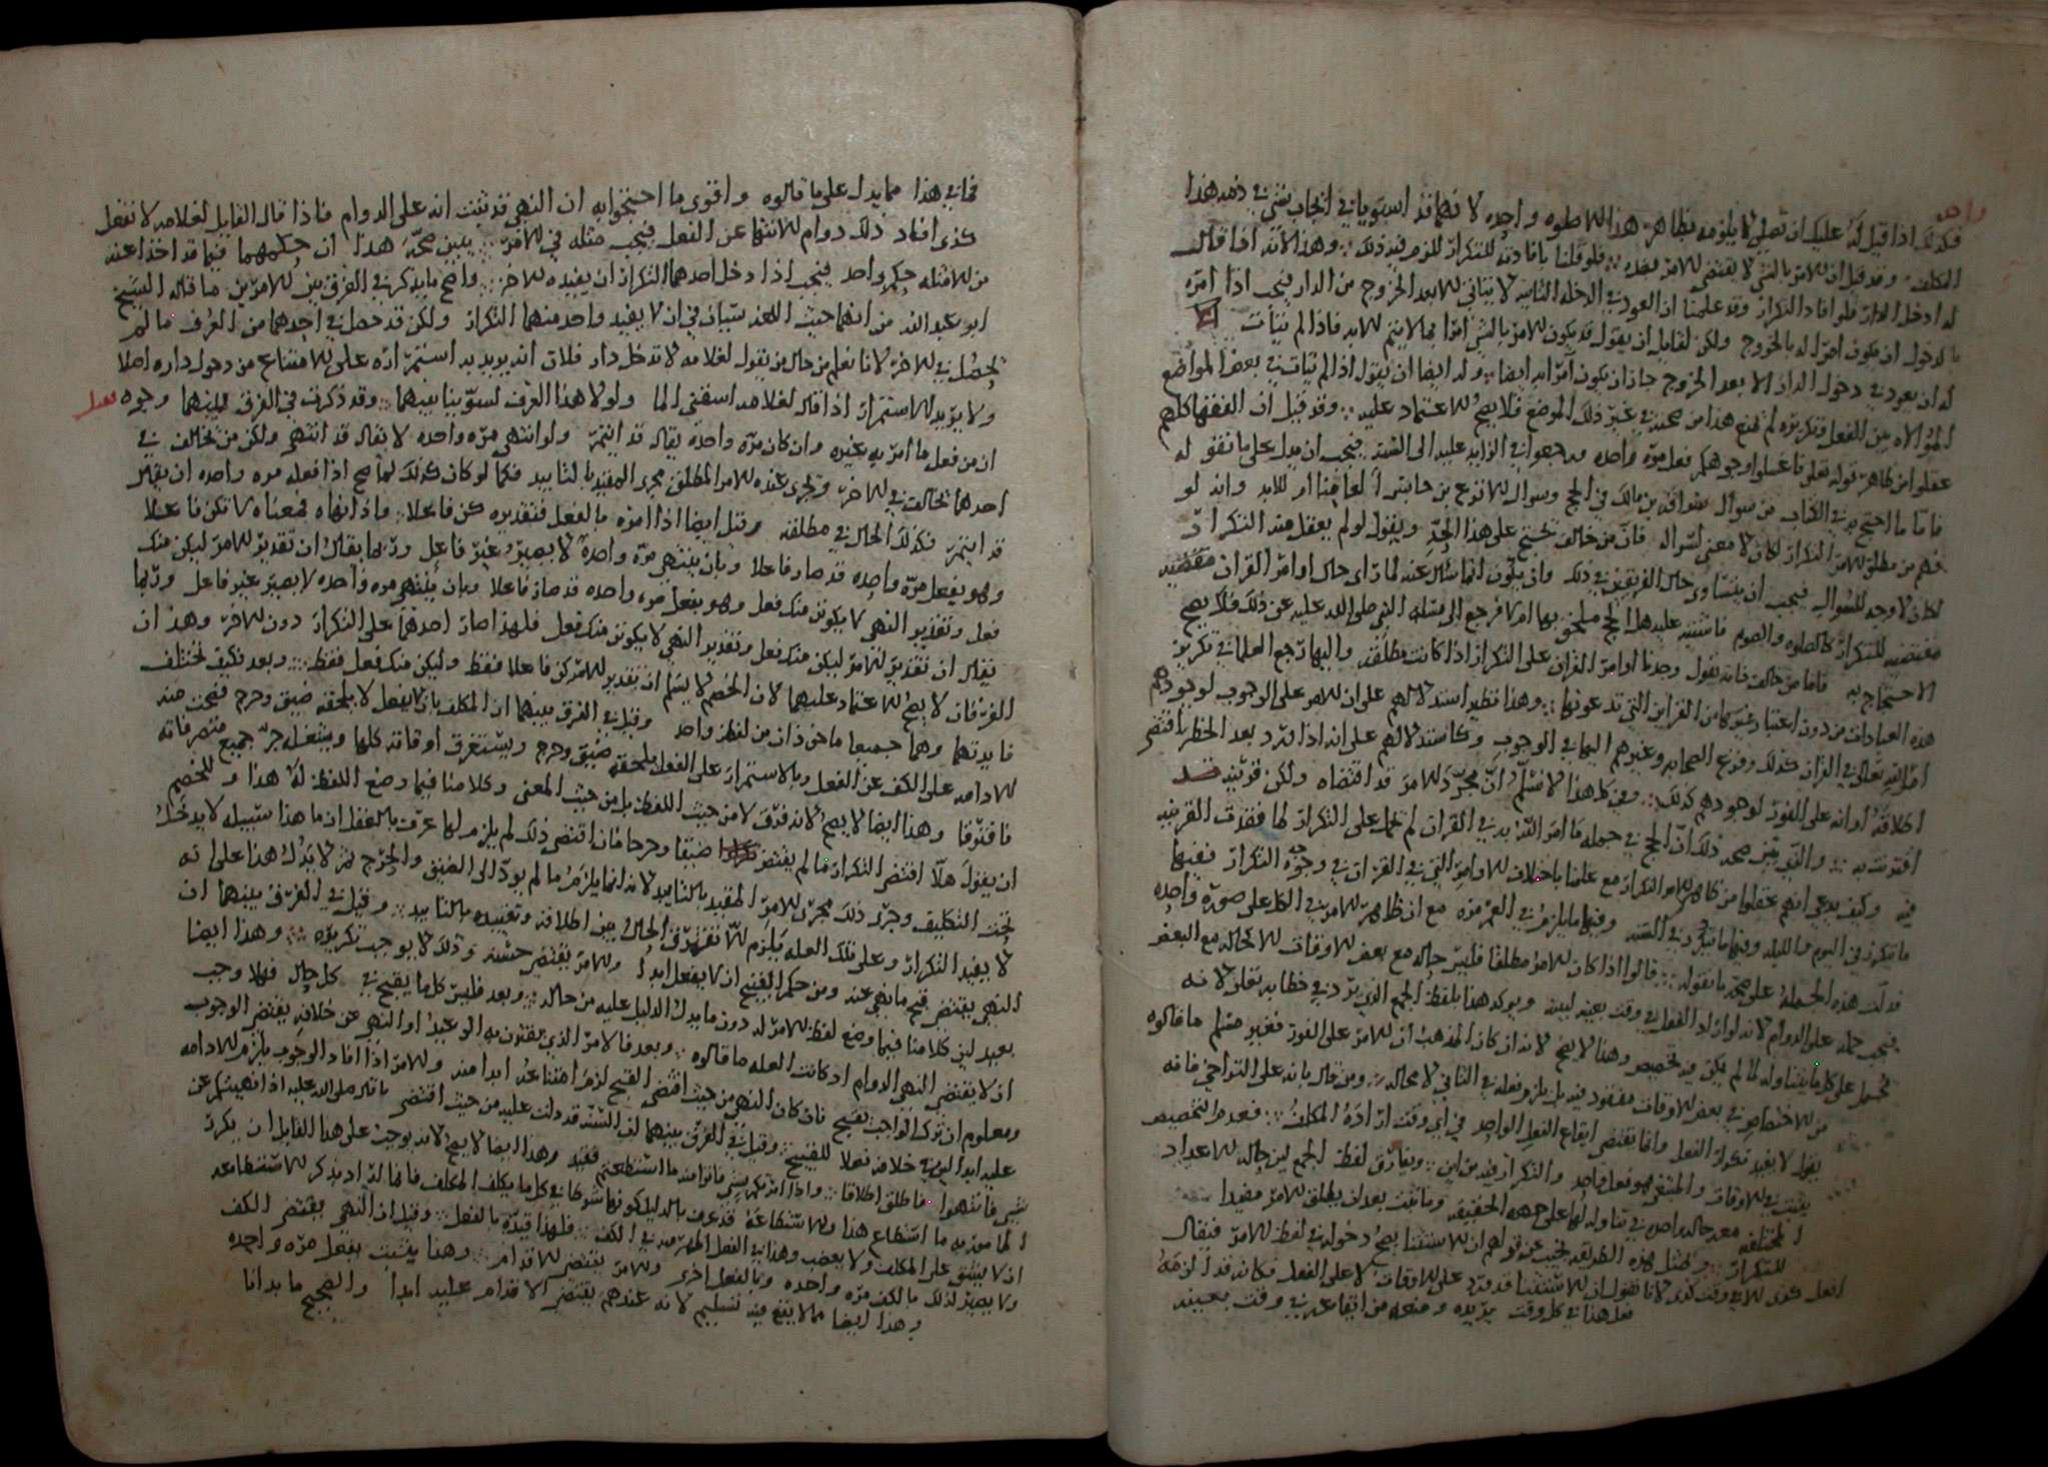 واحد
فكذلك اذا قيل له عليك ان تصلي لا يلزمه بظاهر هذا الا صلوه واحده لانهما قد استويا في ايجاب شي في ذمه هذا
المكلف وقد قيل ان الامر بالشي لا يقتضي الامر بضده فلو قلنا بافادته للتكرار للزم فيه ذلك وهذا لانه اذا قال
له ادخل الدار فلو افاد التكرار وقد علمنا ان العود في الدخله الثانيه لا يتاتى الا بعد الخروج من الدار فيجب اذا امره
بالدخول ان يكون امرا له بالخروج ولكن لقايل ان يقول قد يكون الامر بالشي امرا بما لا يتم الا به فاذا لم يتأت
له ان يعود في دخول الدار الا بعد الخروج جاز ان يكون امرا به ايضا وله ايضا ان يقول اذا لم يتات في بعض المواضع
الموالاه بين الفعل وتكريره لم يمنع هذا من صحته في غير ذلك الموضع فلا يصح الاعتماد عليه وقد قيل ان الفقها كلهم
عقلوا من ظاهر قوله تعلى فاغسلوا وجوهكم فعل مره واحده ورجعوا في الزايد عليه الى السنه فيجب ان يدل على ما نقوله
فاما ما احتج به في الكتاب من سوال سراقه بن مالك في الحج وسوال الاقرع بن حابس ألعامنا ام للابد وانه لو
فهم من مطلق الامر التكرار لكان لا معنى لسواله فان من خالف يحتج على هذا الحد ويقول لو لم يعقل منه التكرار
لكان لا وجه للسوال فيجب ان يتساوى حال الفريقين في ذلك وان يكون انما سال عنه لما راى حال اوامر القران
مقتضيه للتكرار كالصلوه والصوم فاشتبه عليه هل الحج ملحق بها ام لا فرجع الى مسله النبي صلى الله عليه عن ذلك فلا يصح
الاحتجاج به فاما من خالف فانه يقول وجدنا اوامر القران على التكرار اذا كانت مطلقه واليها رجع العلما في تكرير
هذه العبادات من دون اعتبار غيرها من القراين التي تدعونها وهذا نظير استدلالهم على ان الامر على الوجوب لوجودهم
امر الله تعالى في القران كذلك وفزع الصحابه وغيرهم اليها في الوجوب وكاستدلالهم على انه اذا ورد بعد الحظر اقتضى
اطلاقه او انه على الفور لوجودهم كذلك وعن كل هذا لا نسلم ان مجرد الامر قد اقتضاه ولكن قرينه قد
اقترنت به والذي يبين صحه ذلك ان الحج في جمله ما امر الله به في القران لم يحمل على التكرار لما فقدت القرينه
فيه وكيف يدعى انهم عقلوا من ظاهر الامر التكرار مع علمنا باختلاف الاوامر التي في القران في وجوه التكرار ففيها
ما يتكرر في اليوم والليله وفيها ما يتكرر في السنه وفيها ما يلزم في العمر مره مع ان ظاهر الامر في الكل على صوره واحده
فدلت هذه الجمله على صحه ما نقوله قالوا اذا كان الامر مطلقا فليس حاله مع بعض الاوقات الا كحاله مع البعض
فيجب حمله على الدوام لانه لو اراد الفعل في وقت بعينه لبينه ويوكد هذا بلفظ الجمع الذي يرد في خطابه تعلى لانه
يحمل على كل ما يتناوله لما لم يكن فيه تخصيص وهذا لا يصح لانه ان كان المذهب ان الامر على الفور فغير مسلم ما قالوه
من الاختصاص في بعض الاوقات مفقود فيه بل يلزم فعله في الثاني لا محاله ومن قال بانه على التراخي فانه
يقول لا يفيد تكرار الفعل وانما يقتضي ايقاع الفعل الواحد في اي وقت اراده المكلف فعدم التخصيص
يثبت في الاوقات والمستحق هو فعل واحد والتكرار فيه من اين ويفارق لفظ الجمع لان حاله للاعداد
المختلفه معه حاله واحده في تناوله لها على جهه الحقيقه وما ثبت بعد ان مطلق الامر مفيدا
للتكرار وبمثل هذه الطريقه نجيب عن قولهم ان الاستثنا يصح دخوله في لفظ الامر فيقال
افعل كذى الا في وقت كذى لانا نقول ان الاستثنا قد ورد على الاوقات لا على الفعل فكانه قد الزمه
فعل هذا في كل وقت يريده ومنعه من ايقاعه في وقت بعينه
فما في هذا مما يدل على ما قالوه واقوى ما احتجوا به ان النهي قد ثبت انه على الدوام فاذا قال القايل لغلامه لا تفعل
كذى افاد ذلك دوام الانتها عن الفعل فيجب مثله في الامر يبين صحه هذا ان حكمهما فيما قد اخذا عنه
من الامثله حكم واحد فيجب اذا دخل احدهما التكرار ان يفيده الاخر واصح ما يذكر في الفرق بين الامرين ما قاله الشيخ
ابو عبد الله من انهما حيث اللغه سيان في ان لا يفيد واحد منهما التكرار ولكن قد حصل في احدهما من العرف ما لم
يحصل في الاخر لانا نعلم من حال من يقول لغلامه لا تدخل دار فلان انه يريد به استمراره على الامتناع من دخول داره اصلا
ولا يريد الاستمرار اذا قال لغلامه اسقني الما ولولا هذا العرف لسوينا بينهما وقد ذكرت في الفرق بينهما وجوه
ان من فعل ما امر به غيره وان كان مره واحده يقال قد ايتمر ولو انتهى مره واحده لا يقال قد انتهى ولكن من يخالف في
احدهما يخالف في الاخر ويجري عنده الامر المطلق مجرى المقيد بالتابيد فكما لو كان كذلك لما صح اذا فعله مره واحده ان يقال
قد ايتمر فكذلك الحال في مطلقه وقيل ايضا اذا امره بالفعل فتقديره كن فاعلا واذا نهاه فمعناه لا تكن فاعلا
وهو بفعل مره واحده قد صار فاعلا وبان ينتهي مره واحده لا يصير غير فاعل وربما يقال ان تقدير الامر ليكن منك
فعل وتقدير النهي لا يكونن منك فعل وهو بفعل مره واحده قد صار فاعلا وبان ينتهي مره واحده لا يصير غير فاعل وربما
يقال ان تقدير الامر ليكن منك فعل وتقدير النهي لا يكونن منك فعل فلهذا صار احدهما على التكرار دون الاخر وهذان
الفرقان لا يصح الاعتماد عليهما لان الخصم لا يسلم ان تقدير الامر كن فاعلا فقط وليكن منك فعل فقط وبعد فكيف تختلف
فايدتهما وهما جميعا ماخوذان من لفظ واحد وقيل في الفرق بينهما ان المكلف بان لا يفعل لا يلحقه ضيق وحرج فيحسن منه
الادامه على الكف عن الفعل وبالاستمرار على الفعل يلحقه ضيق وحرج ويستغرق اوقاته كلها ويشغله عن جميع متصرفاته
فافترقا وهذا ايضا لا يصح لانه فرق لا من حيث اللفظ بل من حيث المعنى وكلامنا فيما وضع اللفظ له هذا وللخصم
ان يقول هلا اقتضى التكرار ما لم يقتض ضيقا وحرجا فان اقتضى ذلك لم يلزم لما عرف بالعقل ان ما هذا سبيله لا يدخل
تحت التكليف وجرى ذلك مجرى الامر المقيد بالتابيد لانه انما يلزم ما لم يود الى الضيق والحرج ثم لا يدل هذا على انه
لا يفيد التكرار وعلى تلك العله يلزم الا تفترق الحال بين اطلاقه وتقييده بالتابيد وقيل في الفرق بينهما ان
النهي يقتضي قبح ما نهي عنه ومن حكم القبيح ان لا يفعل ابدا والامر يقتضي حسنه وذلك لا يوجب تكريره وهذا ايضا
بعيد لان كلامنا فيما وضع لفظ الامر له دون ما يدل الدليل عليه من حاله وبعد فليس كل ما يقبح في كل حال فهلا وجب
ان لا يقتضي النهي الدوام اذ كانت العله ما قالوه وبعد فالامر الذي يقترن به الوعيد او النهي عن خلافه يقتضي الوجوب
ومعلوم ان ترك الواجب قبيح فان كان النهي من حيث اقتضى القبح لزم امتناعه ابدا منه والامر اذا افاد الوجوب يلزم الادامه
عليه ابدا لان في خلافه فعلا للقبيح وقيل في الفرق بينهما ان السنه قد دلت عليه من حيث اقتضى ما قاله صلى الله عليه اذا نهيتكم عن
شي فانتهوا فاطلق اطلاقا واذا امرتكم بشي فاتوا منه ما استطعتم فقيد وهذا ايضا لا يصح لانه يوجب على هذا القايل ان يكرر
المامور به ما استطاع هذا والاستطاعه قد عرف بالدليل كونها شرطا في كل ما يكلف المكلف فانما اراد بذكر الاستطاعه
ان لا يشق على المكلف ولا يصعب وهذا في الفعل اظهر منه في الكف فلهذا قيده بالفعل وقيل ان النهي يقتضي الكف
ولا يصير كذلك بالكف مره واحده وبالفعل اخرى والامر يقتضي الاقدام وهذا يثبت بفعل مره واحده
وهذا ايضا مما لا يقع فيه تسليم لانه عندهم يقتضي الاقدام عليه ابدا والصحيح ما بدانا